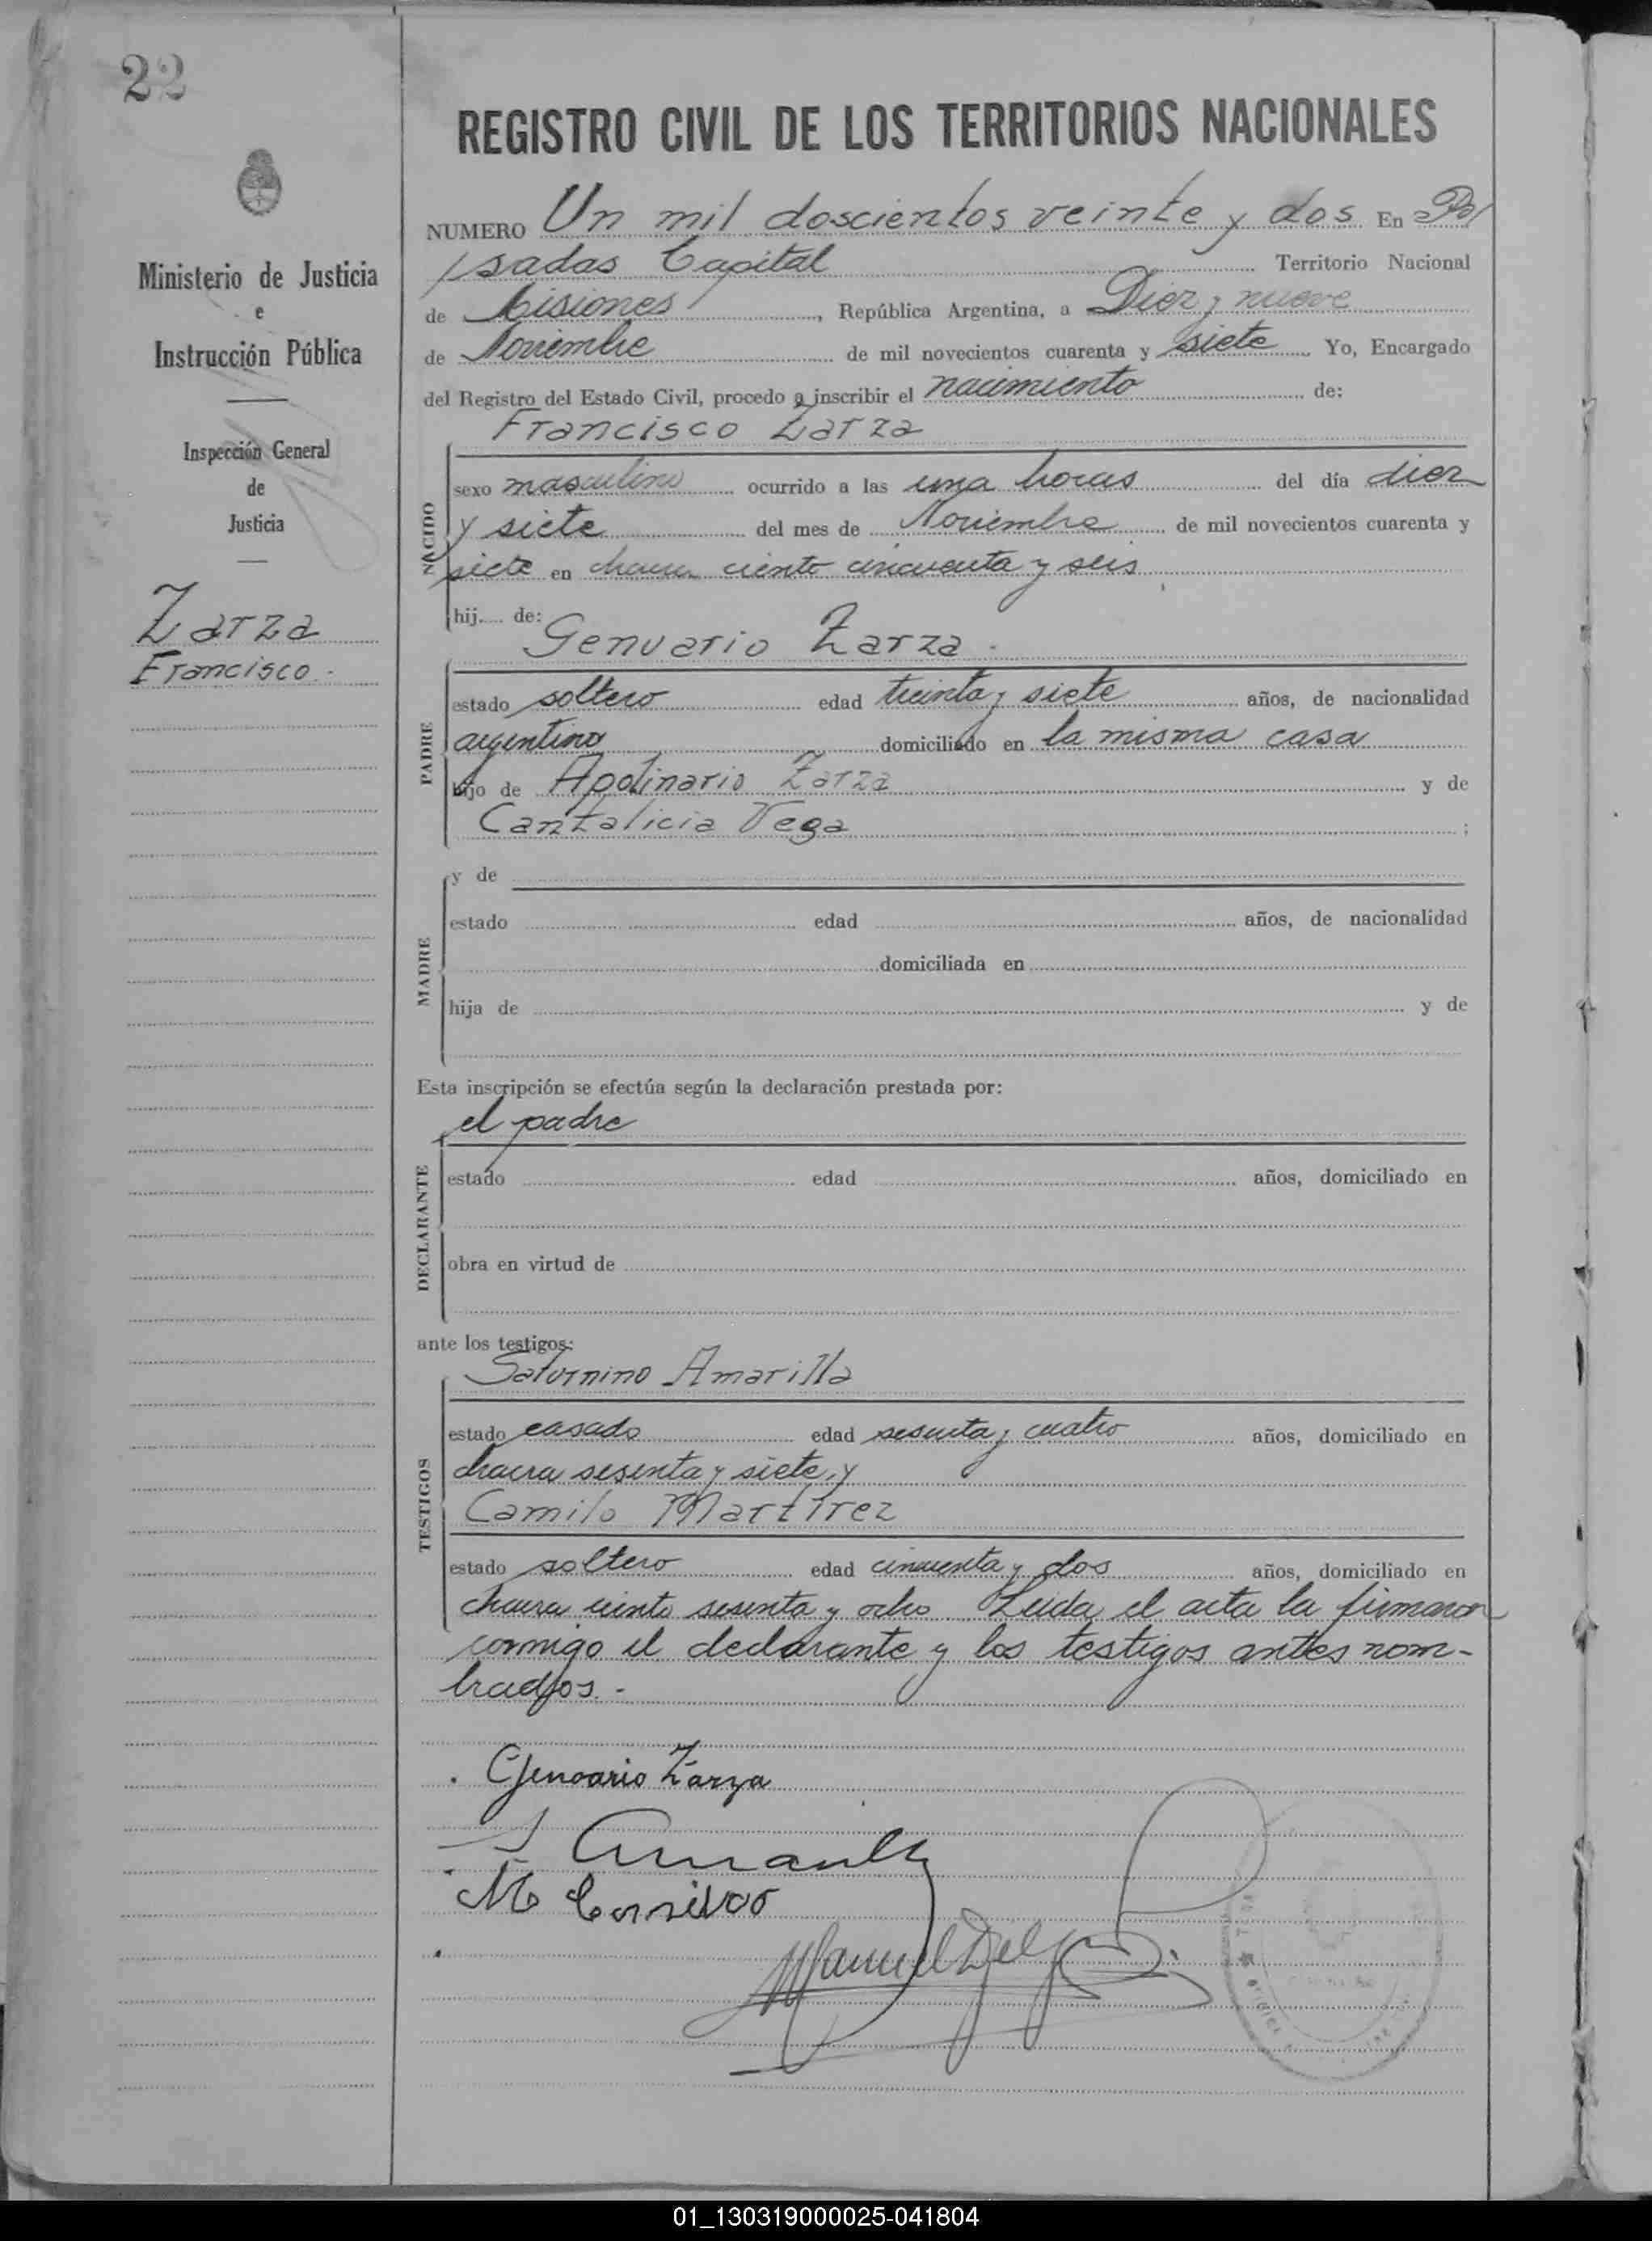 22
Ministerio de Justicia
e
Instrucción Pública
Inspección General
de
Justicia
Zarza
Francisco.
REGISTRO CIVIL DE LOS TERRITORIOS NACIONALES
NUMERO Un mil doscientos veinte y dos En Po/
/sadas Capital Territorio Nacional
de Misiones, República Argentina, a Diez y nueve
de Noviembre de mil novecientos cuarenta y siete Yo, Encargado
del Registro del Estado Civil, procedo a inscribir el nacimiento de:
Francisco Zarza
NACIDO
sexo masculino ocurrido a las una horas del día diez
y siete del mes de Noviembre de mil novecientos cuarenta y
siete en chacra ciento cincuenta y seis
hij.... de:
Genuario Zarza.
PADRE
estado soltero edad treinta y siete años, de nacionalidad
argentino domiciliado en la misma casa
hijo de Apolinario Zarza y de
Cantalicia Vega ;
MADRE
y de
estado edad años, de nacionalidad
domiciliada en
hija de y de
Esta inscripción se efectúa según la declaración prestada por:
el padre
DECLARANTE
estado edad años, domiciliado en
obra en virtud de
ante los testigos:
Saturnino Amarilla
TESTIGOS
estado casado edad sesenta y cuatro años, domiciliado en
chacra sesenta y siete, y
Camilo Martírez
estado soltero edad cincuenta y dos años, domiciliado en
chacra ciento sesenta y ocho Leída el acta la firmaron
conmigo el declarante y los testigos antes nom-
brados.-
Genoario Zarza
Manuel
01_130319000025-041804